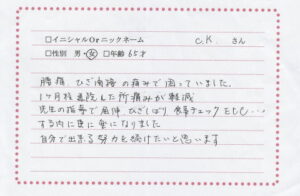 □イニシャルOrニックネーム C.K. さん
□性別 男・女 □年齢65才
腰痛 ひざ関節の痛みで困っていました.
1ヶ月程通院した所痛みが軽減
先生の指導で屈伸 ひざしばり 食事チェックETC…
する内に更に楽になりました
自分で出来る努力を続けたいと思います